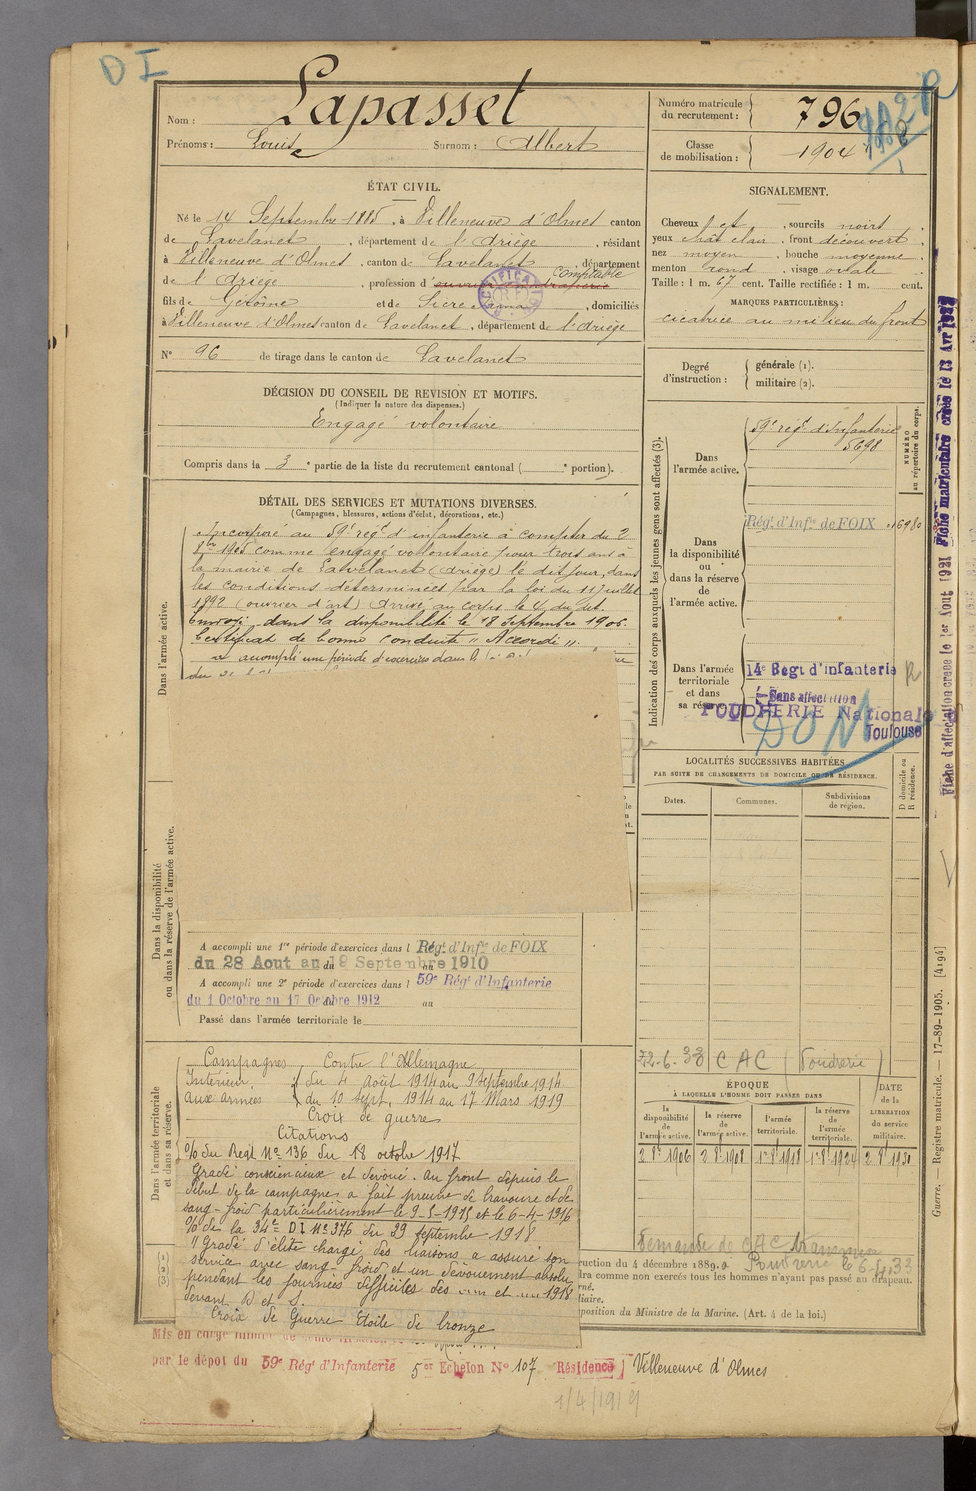 D I
Nom : Lapasset
Prénoms : Louis Surnom : Albert
Numéro matricule du recrutement : 796
Classe de mobilisation : 1904
ÉTAT CIVIL.
Né le 14 Septembre 1885, à Villeneuve d'Olmes canton
de Lavelanet, département de l'Ariège, résidant
à Villeneuve d'Olmes, canton de Lavelanet, département
de l'Ariège, profession d' comptable
fils de Gérôme et de Sicre Anna, domiciliés
à Villeneuve d'Olmes canton de Lavelanet, département de l'Ariège
N° 96 de tirage dans le canton de Lavelanet
SIGNALEMENT.
Cheveux , sourcils noirs
yeux chât clair, front découvert,
nez moyen, bouche moyenne
menton rond, visage ovale
Taille : 1 m. 67 cent. Taille rectifiée : 1 m. cent.
MARQUES PARTICULIÈRES :
cicatrice au milieu du front
Degré d'instruction : générale (1).
militaire (2).
DÉCISION DU CONSEIL DE REVISION ET MOTIFS.
(Indiquer la nature des dispenses.)
Engagé volontaire
Compris dans la 3e partie de la liste du recrutement cantonal ( e portion).
DÉTAIL DES SERVICES ET MUTATIONS DIVERSES.
(Campagnes, blessures, actions d'éclat, décorations, etc.)
Dans l'armée active.
Incorporé au 59e régt d'infanterie à compter du 2
8bre 1905 comme engagé volontaire pour trois ans à
la mairie de Lavelanet (Ariège) le dit jour, dans
les conditions déterminées par la loi du 11 juillet
1892 (ouvrier d'art) Arrivé au corps le 4 du dit.
Envoyé dans la disponibilité le 18 Septembre 1906
Certificat de bonne conduite "Accordé".
a accompli une période d'exercices dans
Indication des corps auxquels les jeunes gens sont affectés (3).
NUMÉRO au répertoire du corps.
Dans l'armée active.
59e régt d'Infanterie
5698
Régt d'Infie de FOIX
Dans la disponibilité ou dans la réserve de l'armée active.
Dans l'armée territoriale et dans sa réserve.
14e Regt d'infanterie
Sans affectation
POUDRERIE Nationale
Toulouse
DOM
LOCALITÉS SUCCESSIVES HABITÉES
PAR SUITE DE CHANGEMENTS DE DOMICILE OU DE RÉSIDENCE.
Dates. Communes. Subdivisions de région. D domicile ou R résidence.
Dans la disponibilité
ou dans la réserve de l'armée active.
A accompli une 1re période d'exercices dans l Régt d'Infie de FOIX
du 28 Aout au 19 Septembre 1910
A accompli une 2e période d'exercices dans l 59e Régt d'Infanterie
du 1 Octobre au 17 Octobre 1912 au
Passé dans l'armée territoriale le
22-6-38 CAC (Poudrerie)
Dans l'armée territoriale
et dans sa réserve.
Campagnes Contre l'Allemagne
Intérieur, du 4 Août 1914 au 9 septembre 1914
aux armées du 10 sept. 1914 au 17 Mars 1919
Croix de guerre
Citations
O/ du Regt N° 136 du 18 octobre 1917
Gradé consciencieux et dévoué. Au front depuis le
début de la campagne, a fait preuve de bravoure et de
sang-froid particulièrement le 9-5-1915 et le 6-4-1916
O/ de la 34e DI N° 376 du 29 septembre 1918
"Gradé d'élite chargé des liaisons, a assuré son
service avec sang froid et un dévouement absolu
pendant les journées difficiles des et 1918
devant B et S.
Croix de Guerre Etoile de bronze
ÉPOQUE
À LAQUELLE L'HOMME DOIT PASSER DANS
la disponibilité de l'armée active.
la réserve de l'armée active.
l'armée territoriale.
la réserve de l'armée territoriale.
DATE de la LIBÉRATION du service militaire.
2 8re 1906 2 8re 1908 1r 8e 1918 1r 8e 1924 2 8e 1930
Demande de CAC transmise
Poudrerie le
(1)
(2)
(3)
ruction du 4 décembre 1889.
dra comme non exercés tous les hommes n'ayant pas passé au drapeau.
rné.
liaire.
position du Ministre de la Marine. (Art. 4 de la loi.)
Mis en congé
par le dépot du 59e Régt d'Infanterie 5e Echelon N° 107 Résidence Villeneuve d'Olmes
1/4/1919
Fiche d'affectation créée le 1er Aout 1921 Fiche matriculaire créée le 13 Avr
Guerre. — Registre matricule. — 17-89-1905. [4194]